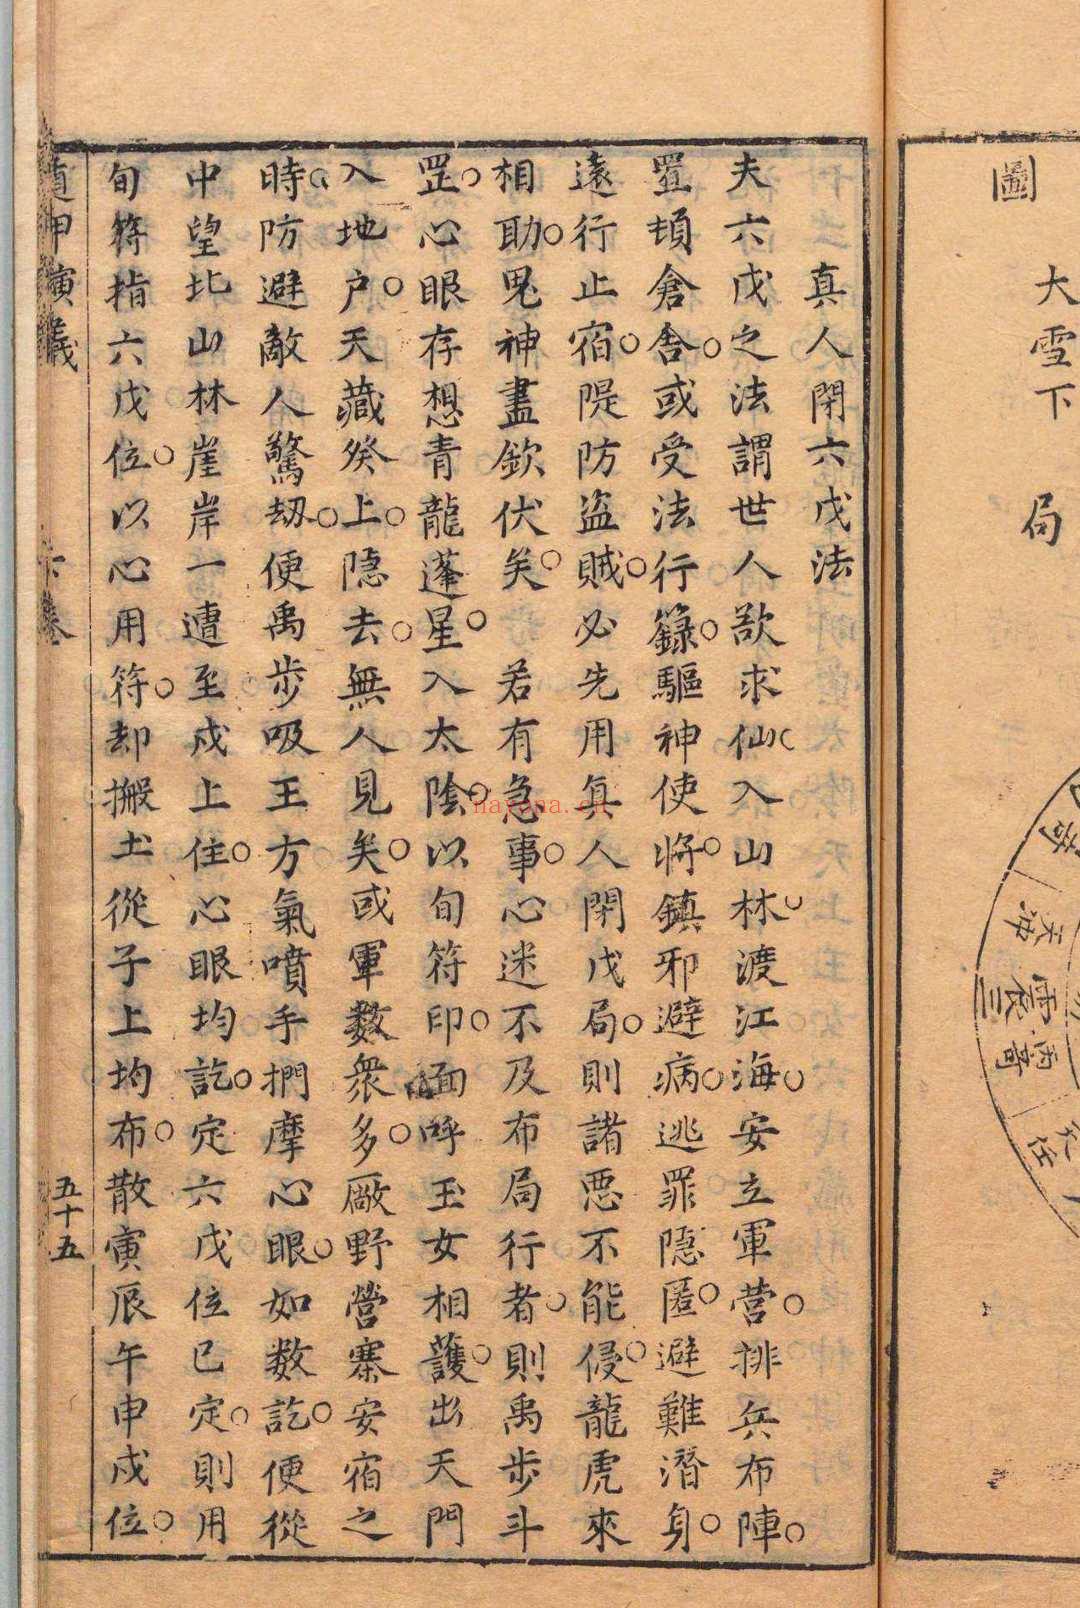 圖
大雪下　局
乙奇
天冲
震三
丙奇
天任
真人閉六戊法
夫六戊之法謂世人欲求仙入山林渡江海安立軍營排兵布陣
置頓倉舎或受法行籙驅神使将鎮邪避病逃罪隠匿避難潛身
遠行止宿隄防盗賊必先用真人閉戊局則諸悪不能侵龍虎來
相助鬼神盡欽伏矣　若有急事心迷不及布局行者則禹步斗
罡心眼存想青龍蓬星入太陰以旬符印面呼玉女相護出天門
入地户天藏癸上隠去無人見矣或軍数衆多厰野營寨安宿之
時防避敵人驚刼便禹步吸王方氣噴手捫摩心眼如数訖便從
中望北山林崖岸一遭至戍上住心眼均訖定六戊位已定則用
旬符指六戊位以心用符却搬土從子上均布散寅辰午申戍位
遁甲演義
卷
五十五
nayona.cn